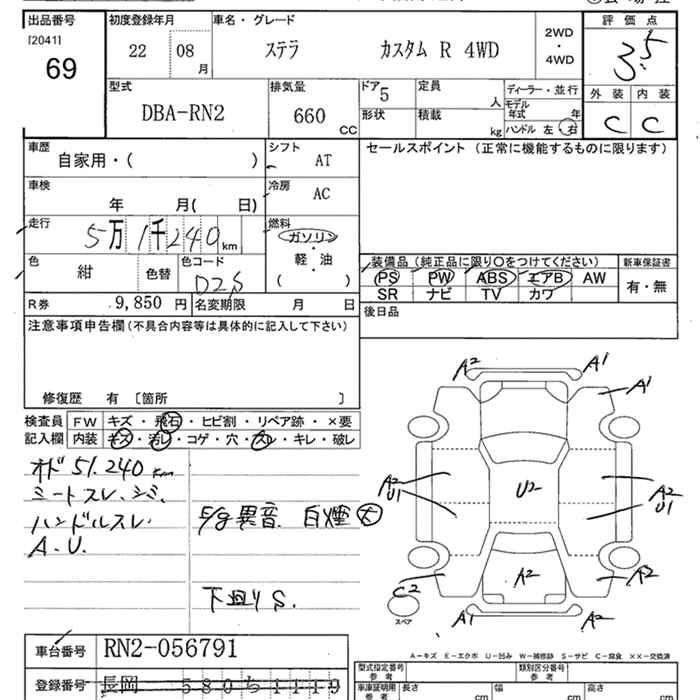 出品番号 初度登録年月 車名・グレード 評価点
[2041] 69 22 08 月 ステラ カスタム R 4WD 2WD ・ 4WD 3.5
型式 排気量 ドア 5 定員 人 ディーラー・並行 外装 内装
DBA-RN2 660 CC 形状 積載 kg モデル年式 年 C C
ハンドル 左 右
車歴 自家用・( ) シフト AT セールスポイント(正常に機能するものに限ります)
車検 年 月( 日) 冷房 AC
走行 5万1千240km 燃料 ガソリン・軽油 ( )
色 紺 色替 色コード D2S
装備品(純正品に限り○をつけてください) 新車保証書
PS PW ABS エアB AW 有・無
SR ナビ TV カワ
R券 9,850円 名変期限 月 日 後日品
注意事項申告欄(不具合内容等は具体的に記入して下さい)
修復歴 有 〔箇所 〕
検査員 FW キズ・飛石・ヒビ割・リペア跡・×要
記入欄 内装 キズ・汚レ・コゲ・穴・スレ・キレ・破レ
オド51.240km
ミートスレ、シミ、
ハンドルスレ E/g異音、白煙大
A.U.
下廻りS.
A2 A1
A1
A2 U1 U2 A2 U1
C2 A2 A2
スペア A1 A2
A-キズ E-エクボ U-凹み W-補修跡 S-サビ C-腐食 ××-交換済
車台番号 RN2-056791
型式指定番号 参考 類別区分番号 参考
登録番号 長岡 580ち1119
車庫証明用 参考 長さ cm 幅 cm 高さ cm